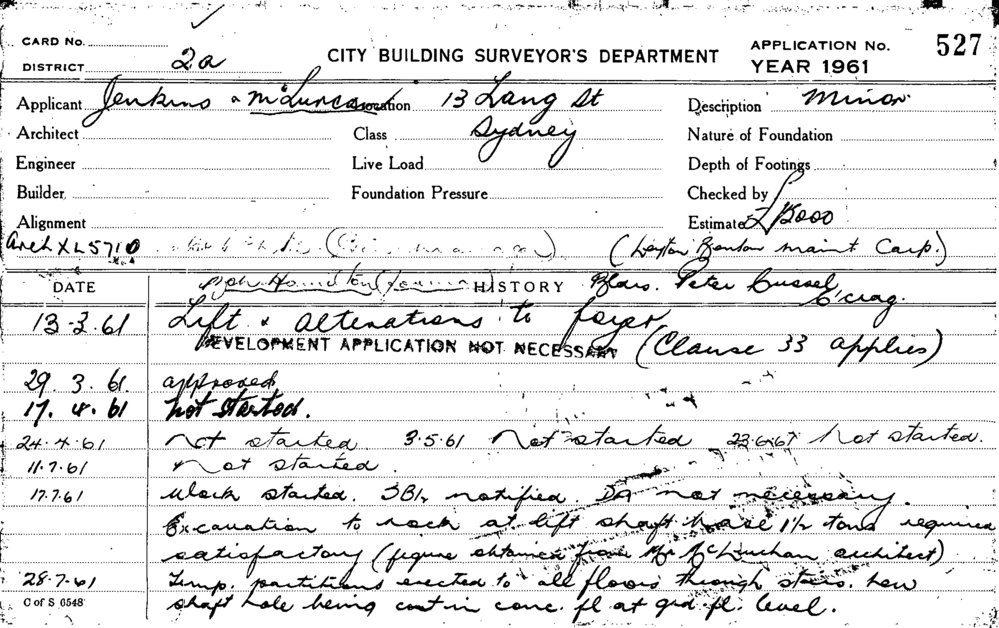 CARD No.
DISTRICT 2a
CITY BUILDING SURVEYOR'S DEPARTMENT
APPLICATION No. 527
YEAR 1961
Applicant Jenkins & McLurcan Location 13 Lang St
Sydney
Description Minor
Architect
Class
Nature of Foundation
Engineer
Live Load
Depth of Footings
Builder
Foundation Pressure
Checked by
Alignment
Estimate £15000
Arch XL5710
(Leyton Benton Maint Carp.)
DATE
HISTORY
Peter Cussel
C'crag.
13.3.61 Lift & Alterations to foyer
DEVELOPMENT APPLICATION NOT NECESSARY (Clause 33 applies)
29.3.61. approved
17.4.61 Not started.
24.4.61 Not started 3.5.61 Not started 23.6.61 Not started.
11.7.61 Not started.
17.7.61 Work started. notified. DA not necessary.
Excavation to rock at lift shaft base 1½ tons required
satisfactory (figure obtained from Mr McLurcan architect)
28.7.61 Temp. partitions erected to all floors through stairs. new
shaft hole being cut in conc. fl at grd. fl. level.
C of S 6548